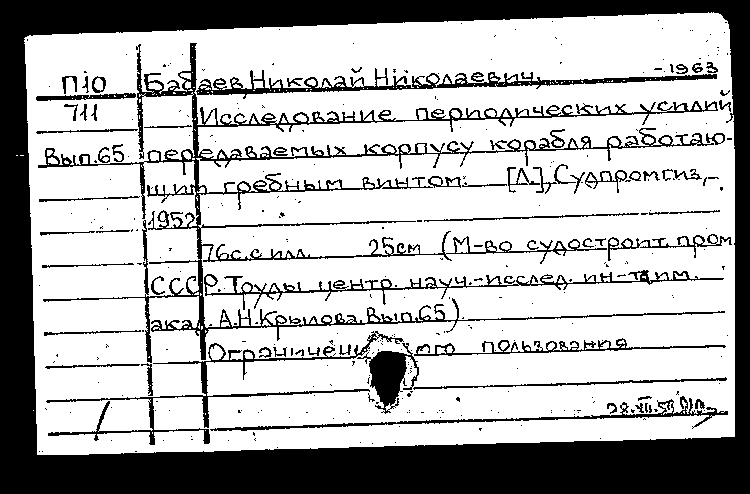 П10 Бабаев, Николай Николаевич, -1963
711 Исследование периодических усилий,
Вып.65 передаваемых корпусу корабля работаю-
щим гребным винтом. [Л.], Судпромгиз,-
1952
76с. с илл. 25см (М-во судостроит. пром.
СССР. Труды центр. науч.-исслед. ин-та им.
акад. А.Н.Крылова. Вып.65)
пользования